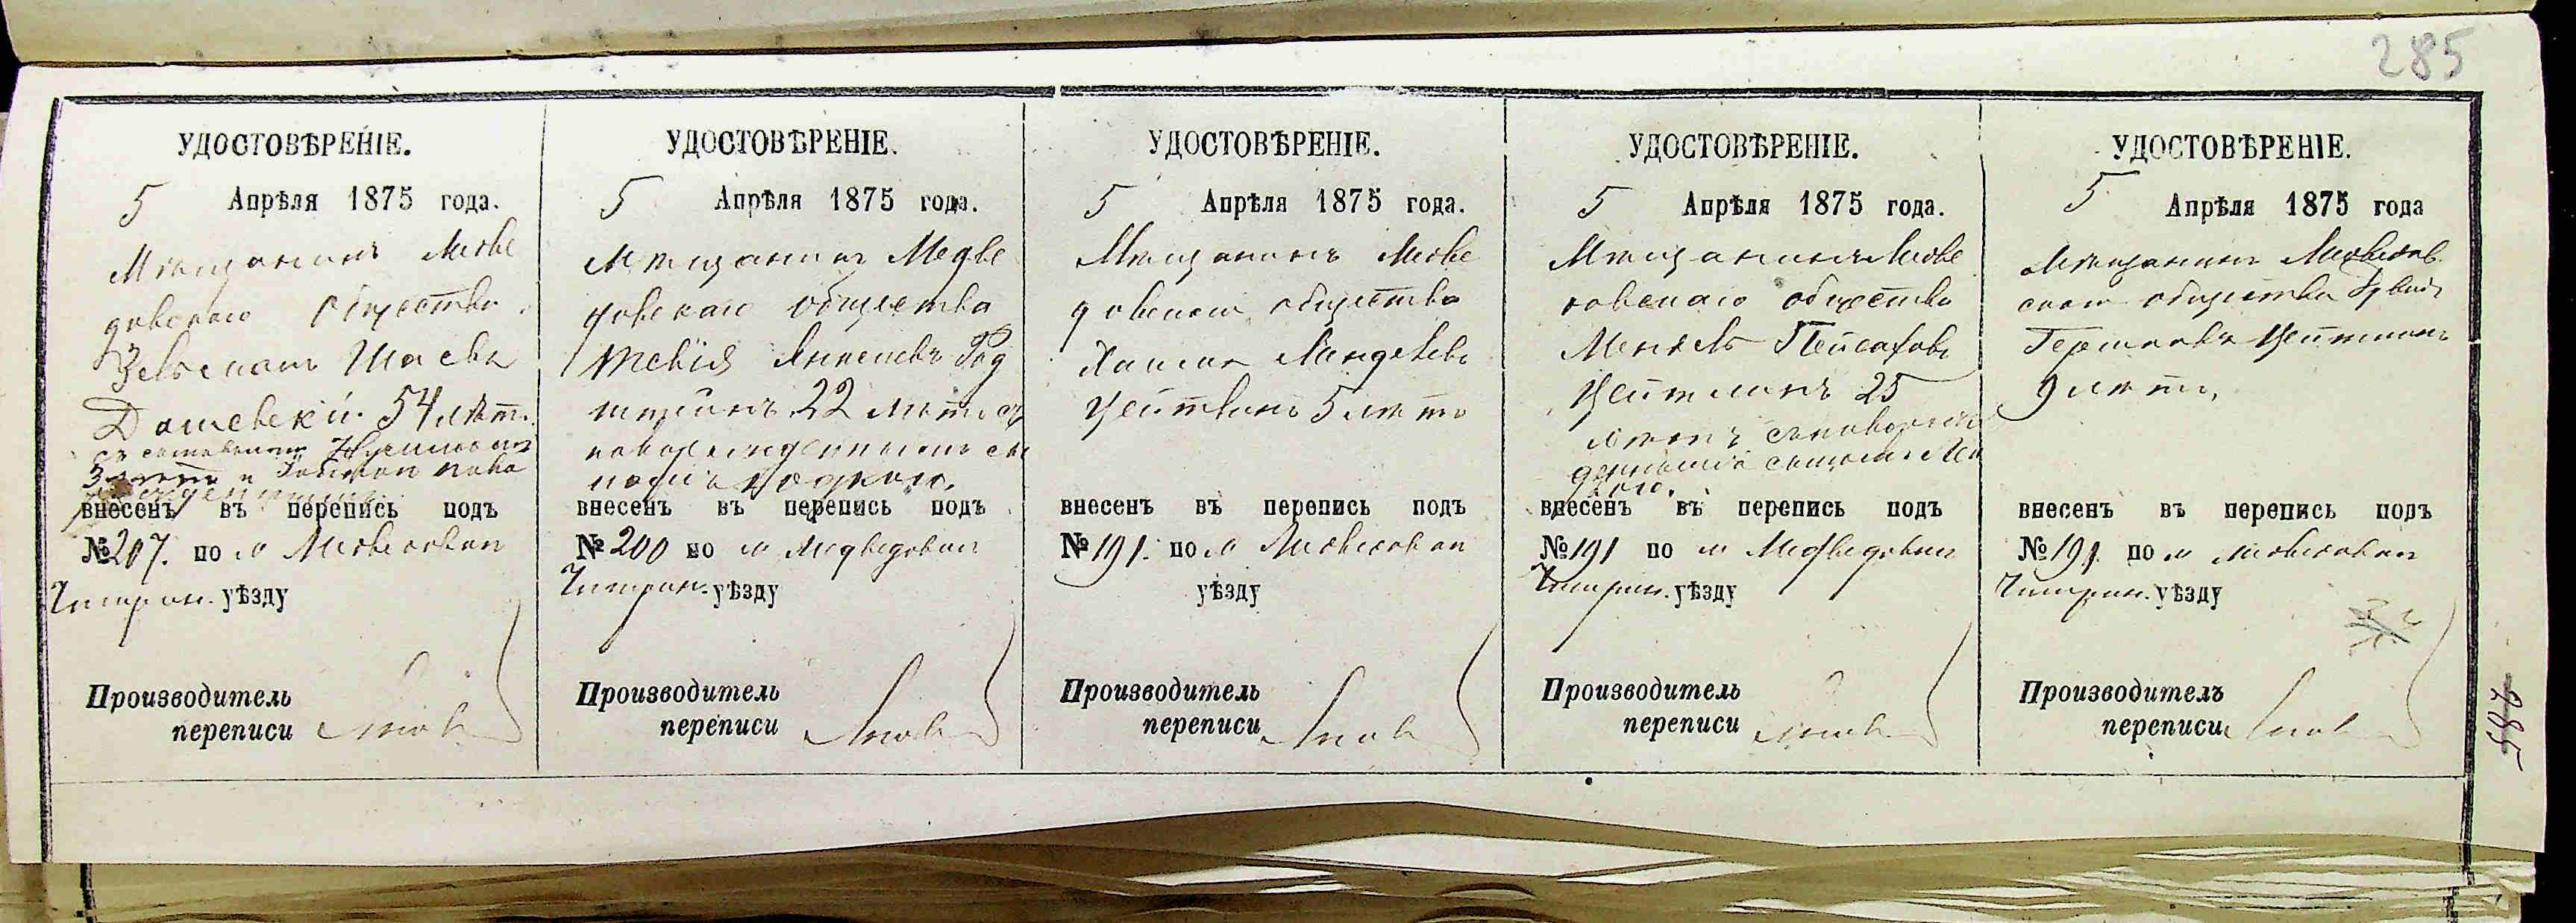 285
УДОСТОВѢРЕНІЕ.
5 Апрѣля 1875 года.
Мѣщанинъ Медве
довскаго Общества
Шаевъ
Дашевскій 54 лѣтъ
съ сыновьями
3 лѣтъ и ново
рожденнымъ
внесенъ въ перепись подъ
№ 207. по м Медведовки
Чигрин. уѣзду
Производитель
переписи
УДОСТОВѢРЕНІЕ.
5 Апрѣля 1875 года.
Мѣщанинъ Медве
довскаго общества
Янкелевъ
22 лѣтъ съ
новорожденнымъ сы
номъ
внесенъ въ перепись подъ
№ 200 по м Медведовки
Чигрин. уѣзду
Производитель
переписи
УДОСТОВѢРЕНІЕ.
5 Апрѣля 1875 года.
Мѣщанинъ Медве
довскаго общества
Менделевъ
Цейтлинъ 5 лѣтъ
внесенъ въ перепись подъ
№ 191. по м Медведовки
уѣзду
Производитель
переписи
УДОСТОВѢРЕНІЕ.
5 Апрѣля 1875 года.
Мѣщанинъ Медве
довскаго общества
Мендель Пейсаховъ
Цейтлинъ 25
лѣтъ съ новорож
деннымъ сыномъ
внесенъ въ перепись подъ
№ 191 по м Медведовки
Чигрин. уѣзду
Производитель
переписи
УДОСТОВѢРЕНІЕ.
5 Апрѣля 1875 года
Мѣщанинъ Медведов
скаго общества
Гершковъ Цейтлинъ
9 лѣтъ,
внесенъ въ перепись подъ
№ 191. по м Медведовки
Чигрин. уѣзду
Производитель
переписи